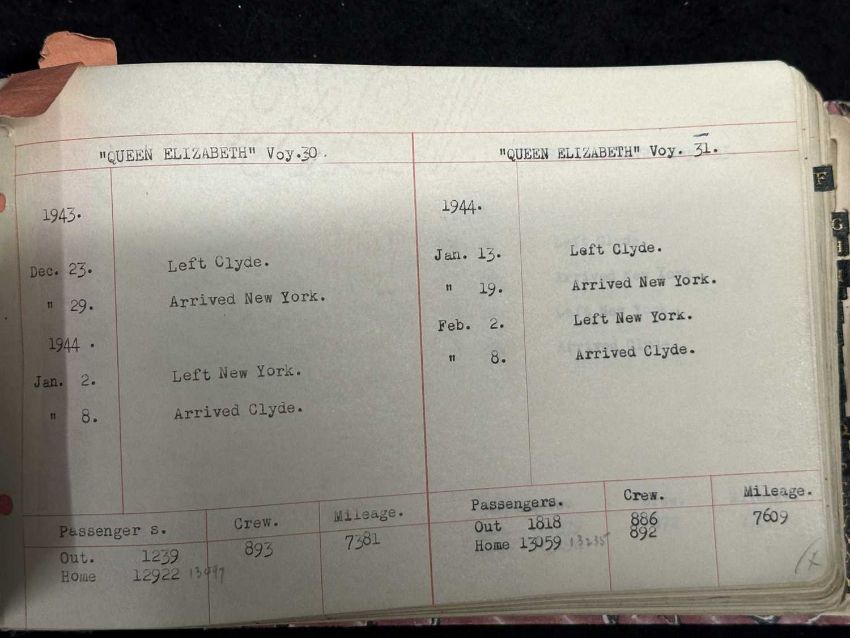 "QUEEN ELIZABETH" Voy.30.
1943.
Dec. 23. Left Clyde.
" 29. Arrived New York.
1944.
Jan. 2. Left New York.
" 8. Arrived Clyde.
Passenger s. Crew. Mileage.
Out. 1239 893 7381
Home 12922
"QUEEN ELIZABETH" Voy. 31.
1944.
Jan. 13. Left Clyde.
" 19. Arrived New York.
Feb. 2. Left New York.
" 8. Arrived Clyde.
Passengers. Crew. Mileage.
Out 1818 886 7609
Home 13059 13235 892
F
G
H